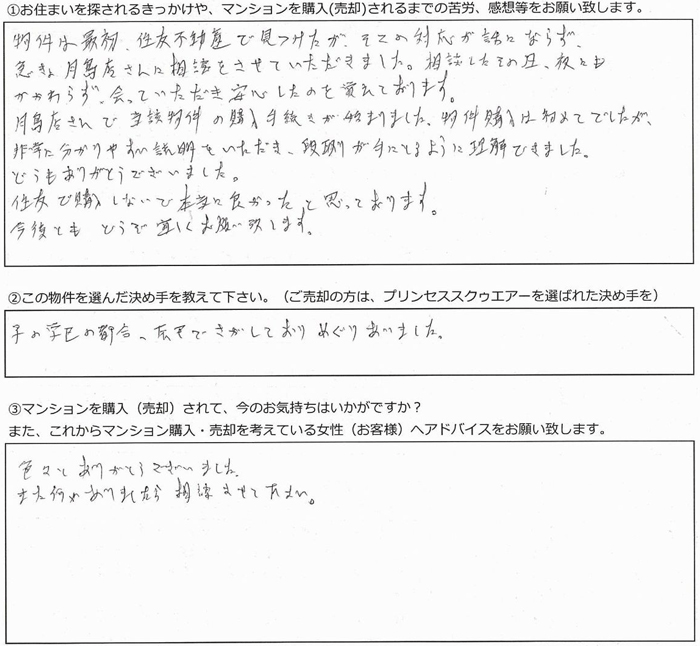 ①お住まいを探されるきっかけや、マンションを購入(売却)されるまでの苦労、感想等をお願い致します。
物件は最初、住友不動産で見つけたが、そこの対応が話にならず、
急きょ月島店さんに相談をさせていただきました。相談したその日、夜にも
かかわらず、会っていただき安心したのを覚えております。
月島店さんで当該物件の購入手続きが始まりました、物件購入は初めてでしたが、
非常に分かりやすい説明をいただき、段取りが手にとるように理解できました。
どうもありがとうございました。
住友で購入しないで本当に良かったと思っております。
今後とも どうぞ宜しくお願い致します。
②この物件を選んだ決め手を教えて下さい。（ご売却の方は、プリンセススクゥエアーを選ばれた決め手を）
子の学区の都合、でさがしており めぐりあいました。
③マンションを購入（売却）されて、今のお気持ちはいかがですか？
また、これからマンション購入・売却を考えている女性（お客様）へアドバイスをお願い致します。
色々とありがとうございました。
また何かありましたら相談させて下さい。